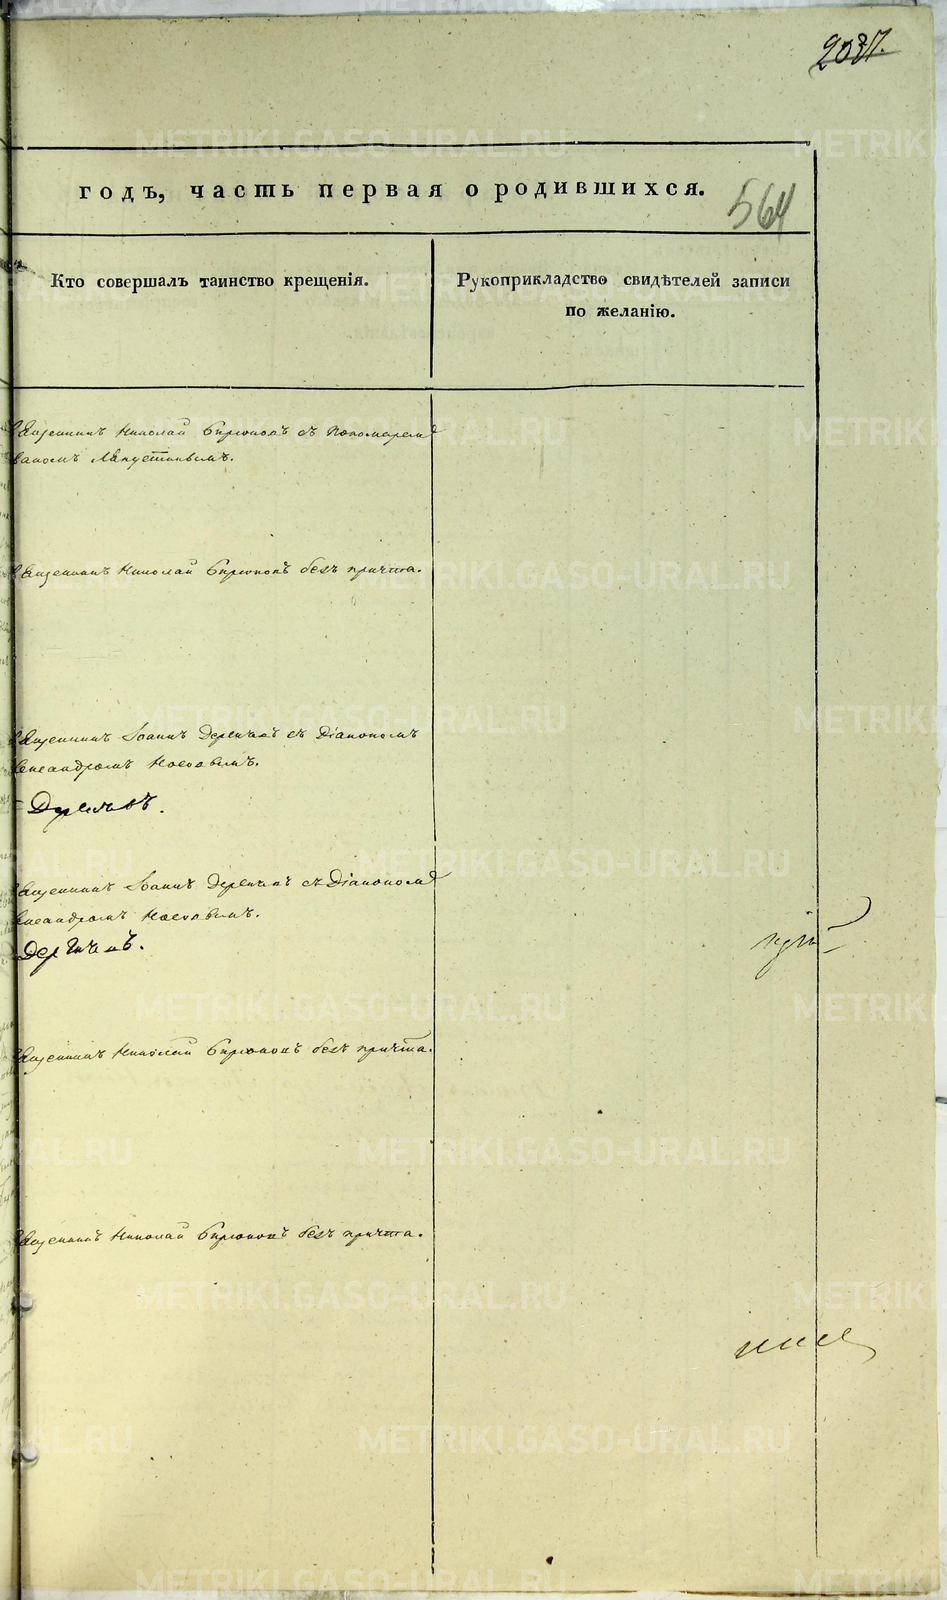 2037.
годъ, часть первая о родившихся.
564
Кто совершалъ таинство крещенія.
Рукоприкладство свидѣтелей записи
по желанію.
Священникъ Николай Бирюковъ съ Пономаремъ
Священникъ Николай Бирюковъ безъ причта.
Священникъ Іоаннъ Дерябинъ съ Діакономъ
Носовымъ.
Священникъ Іоаннъ съ Діакономъ
Носовымъ.
Священникъ Николай Бирюковъ безъ причта.
Священникъ Николай Бирюковъ безъ причта.
METRIKI.GASO-URAL.RU